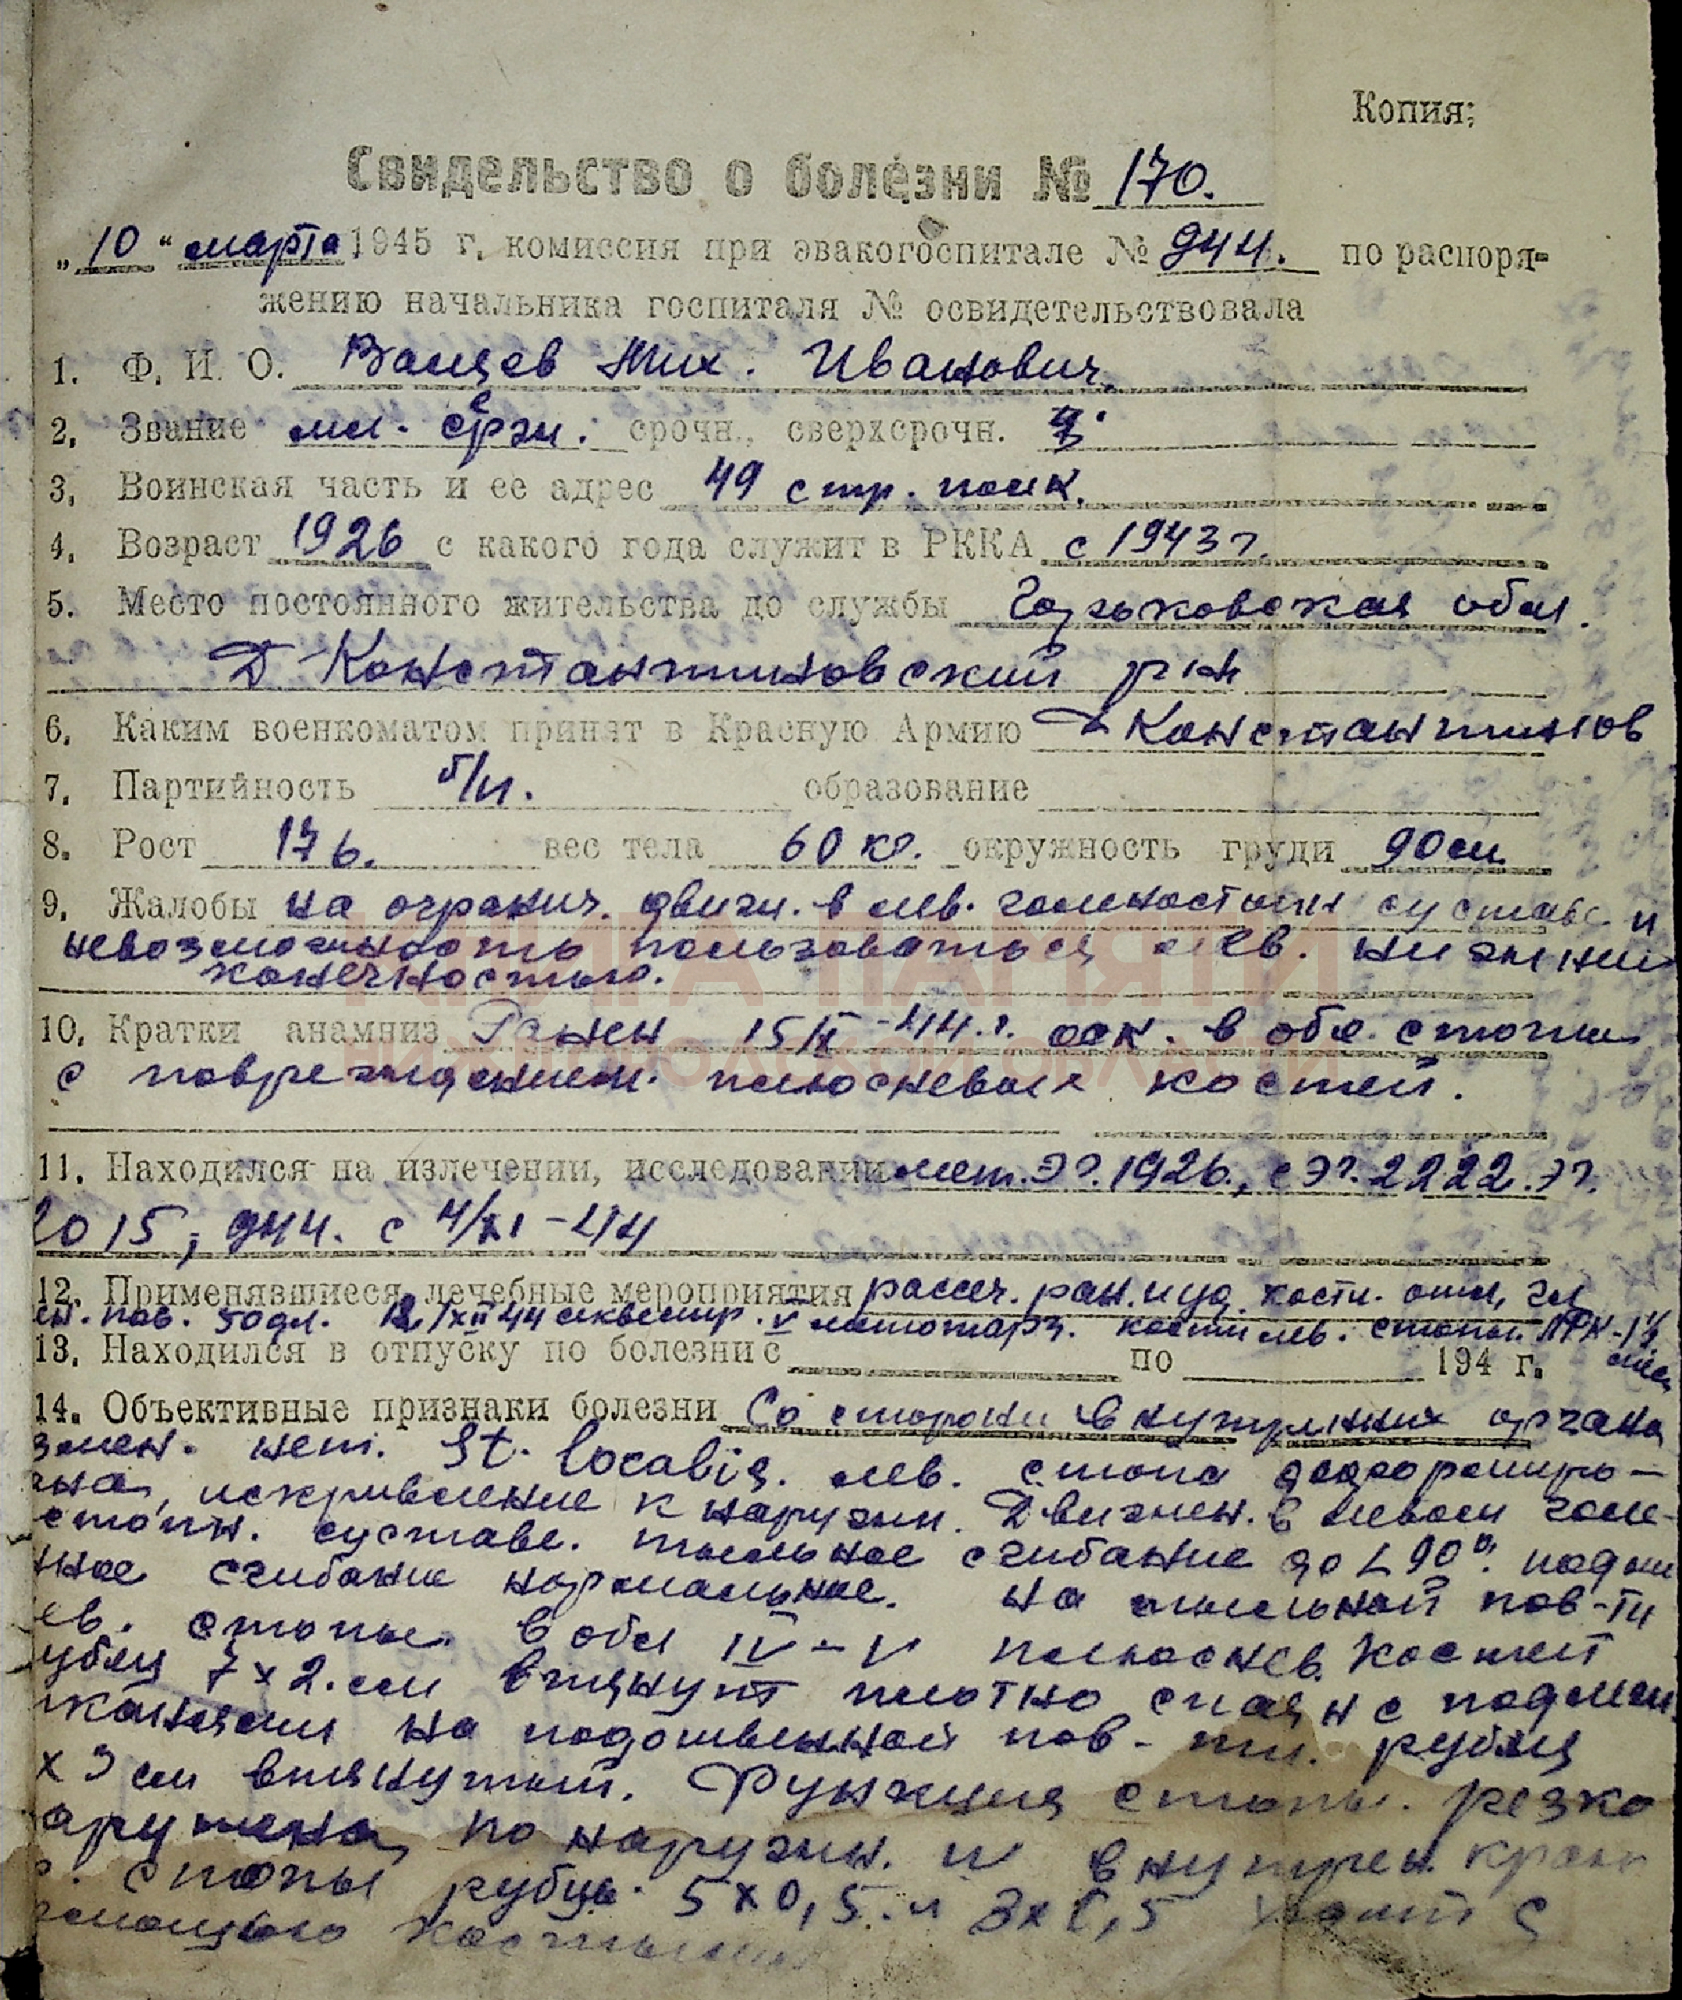 Копия;
Свидельство о болезни № 170.
„10“ марта 1945 г. комиссия при эвакогоспитале № 944. по распоря-
жению начальника госпиталя № освидетельствовала
1. Ф. И. О. Ванцев Мих. Иванович.
2. Звание мл. серж. срочн., сверхсрочн.
3. Воинская часть и ее адрес 49 стр. полк.
4. Возраст 1926 с какого года служит в РККА с 1943 г.
5. Место постоянного жительства до службы Горьковская обл.
Д-Константиновский р-н
6. Каким военкоматом принят в Красную Армию Д Константинов
7. Партийность б/п. образование
8. Рост 176. вес тела 60 кг. окружность груди 90 см.
9. Жалобы на огранич. движ. в лев. голеностопн суставе и
невозможность пользоваться лев. нижний
конечностью.
КНИГА ПАМЯТИ
10. Кратки анамниз Ранен 15/X-44.г. оск. в обл. стопы
НИЖЕГОРОДСКОЙ ОБЛАСТИ
с повреждением плюсневых костей.
11. Находился на излечении, исследовании лет. ЭГ. 1926., с ЭГ. 2222. ЭГ.
2015, 944. с 4/XI-44
12. Применявшиеся лечебные мероприятия рассеч. ран. и уд. кости. отл,
пов. 50 дл. 12/XII 44 секвестр. V мототарз. кости лев. стопы. ЛФК-1½
мес
13. Находился в отпуску по болезни с по 194 г.
14. Объективные признаки болезни Со стороны внутрянних органа
змен. нет. St. localis. лев. стопа деформиро-
на, искривление к наружи. Движен. в левом голе-
стопн. суставе. тыльное сгибание до L 90°. подош
нное сгибание нормальное. На тыльной пов-ти
ев. стопы в обл IV-V плюснев. костей
убец 7 x 2. см втянут плотно спаян с подлеж.
тканями на подошвенной пов-ти. рубец
x 3 см втянутый. Функция стопы. резко
арушена, по наружн. и внутрен. краю
стопы рубцы 5x0,5. и 3x0,5 ходит с
помощью костылей